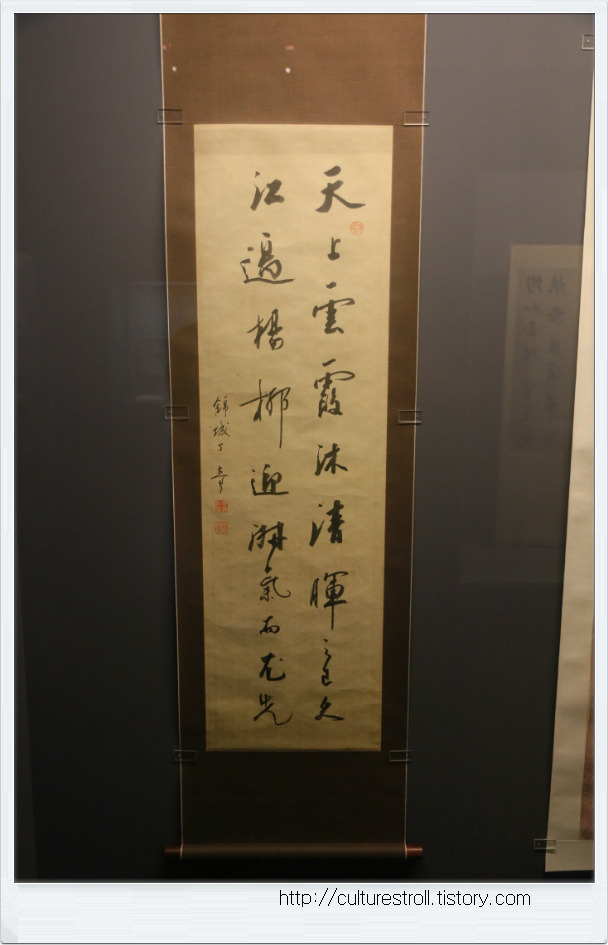 天上雲霞沐清暉之久
江邊楊柳迎淑氣而尤先
錦城丁
http://culturestroll.tistory.com